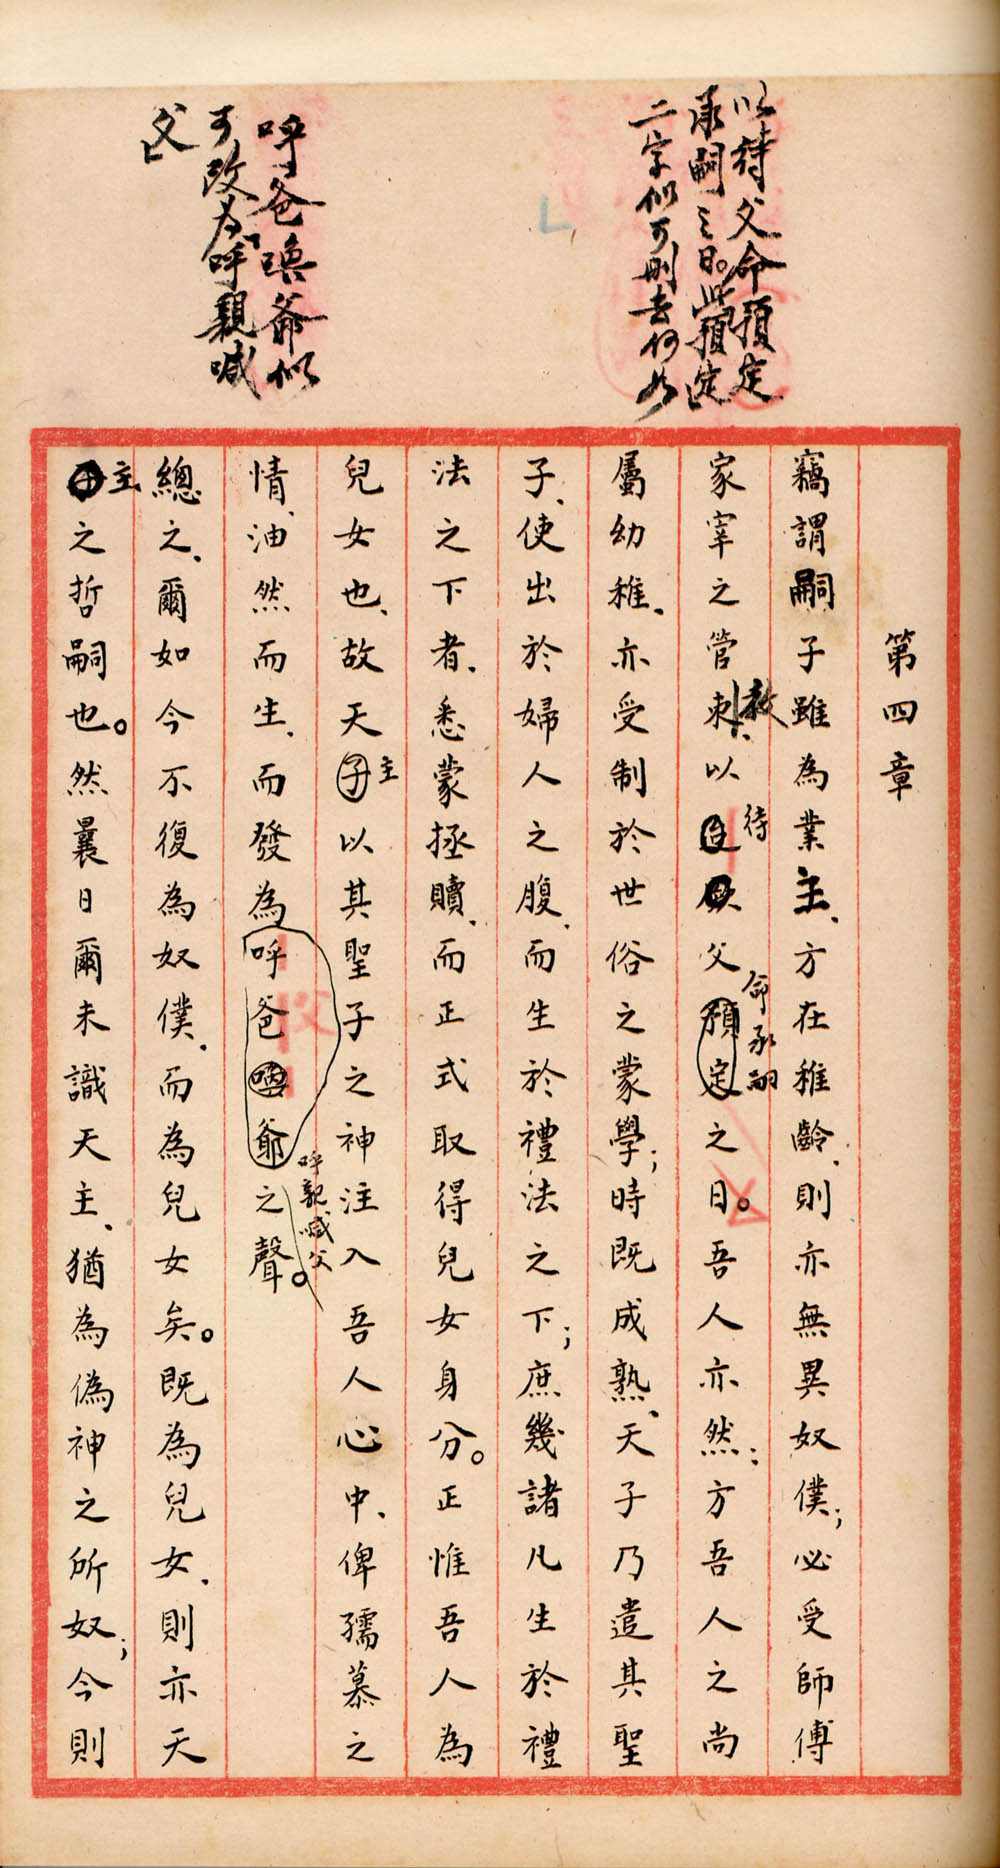 以待父命預定
承嗣之日。此預定
二字似可刪去何如
呼爸喚爺似
可改為「呼親喊
父」
第四章
竊謂嗣子雖為業主、方在稚齡、則亦無異奴僕；必受師傅
家宰之管束、以父預定之日。吾人亦然；方吾人之尚
教
待
命承嗣
屬幼稚、亦受制於世俗之蒙學；時既成熟、天子乃遣其聖
子、使出於婦人之腹、而生於禮法之下；庶幾諸凡生於禮
法之下者、悉蒙拯贖、而正式取得兒女身分。正惟吾人為
兒女也、故天子以其聖子之神注入吾人心中、俾孺慕之
主
情、油然而生、而發為呼爸喚爺之聲。
呼親喊父
總之、爾如今不復為奴僕、而為兒女矣。既為兒女、則亦天
主之哲嗣也。然曩日爾未識天主、猶為偽神之所奴；今則